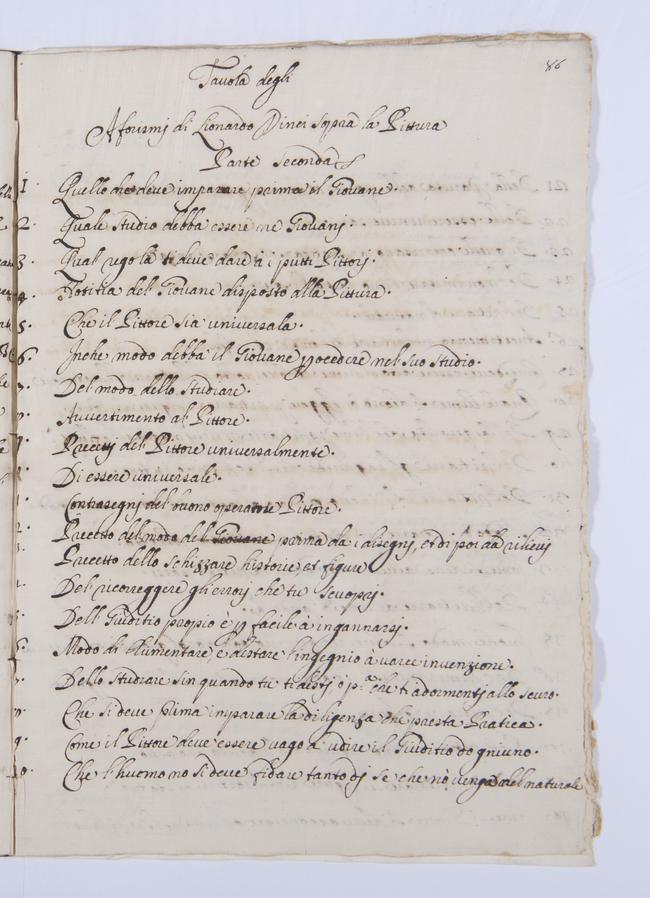 86
Tavola degli
Aforismj di Lionardo Vinci sopra la Pittura
Parte seconda
1. Quello che deve imparare prima il Giovane.
2. Quale studio debba essere ne Giovanj.
3. Qual regola si deve dare à i putti Pittorj.
4. Notitia del Giovane disposto alla Pittura.
5. Che il Pittore sia universale.
6. Inche modo debba il Giovane procedere nel suo studio.
Del modo dello studiare.
Avvertimento al Pittore.
Precetti del Pittore universalmente.
Di essere universale.
Contrasegnj del buono Pittore.
Precetto del modo del prima da i disegnj, et di poi da rilievj
Precetto dello schizzare historie, et figure
Del ricorreggere gli errorj che tu scuoprj.
Dell Giuditio propio è facile à ingannarsj.
Modo di Aumentare, è destare l'ingegnio à varee invenzione.
Dello studiare sin quando tu ti destj ò pª che ti adormentj allo scuro.
Che si deve prima imparare la diligenza che presta Pratica.
9. Come il Pittore deve essere vago d' udire il Giuditio do gniuno.
Che l'huomo no si deve fidare tanto dj se che no venga dal naturale